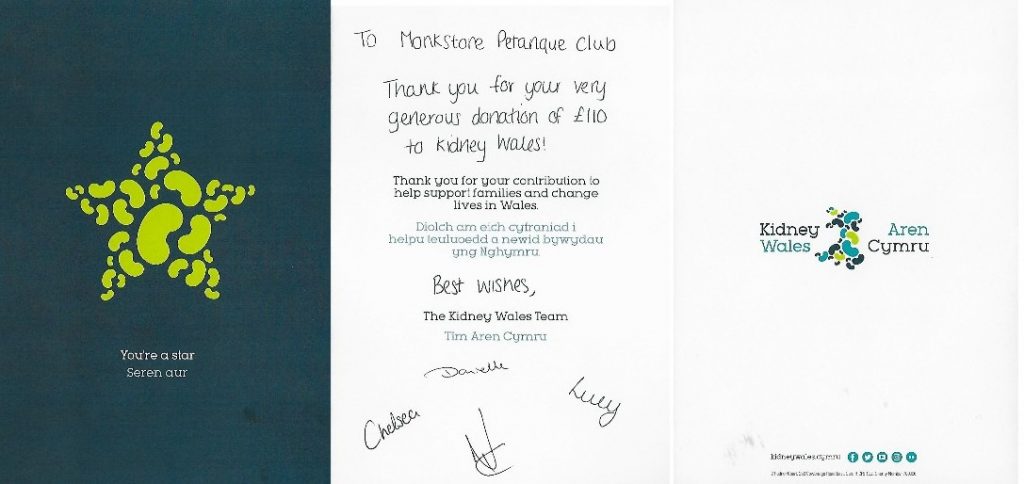 You're a star
Seren aur
To Monkstone Petanque Club
Thank you for your very
generous donation of £110
to Kidney Wales!
Thank you for your contribution to
help support families and change
lives in Wales.
Diolch am eich cyfraniad i
helpu teuluoedd a newid bywydau
yng Nghymru.
Best wishes,
The Kidney Wales Team
Tîm Aren Cymru
Danielle
Chelsea
Lucy
Kidney
Wales
Aren
Cymru
kidneywales.cymru